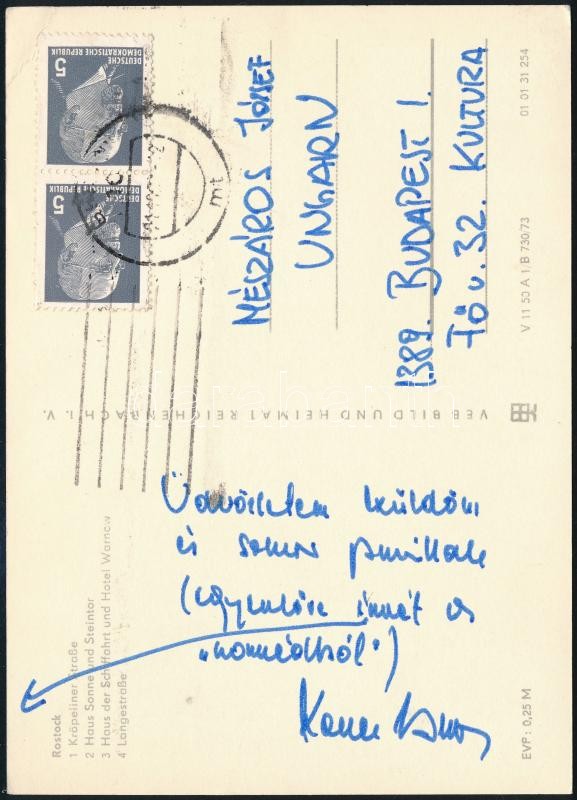 DEUTSCHE
DEMOKRATISCHE REPUBLIK
5
DEUTSCHE
DEMOKRATISCHE REPUBLIK
5
MÉSZÁROS JÓZSEF
UNGARN
1389. BUDAPEST 1.
Fő u. 32. KULTURA
VEB BILD UND HEIMAT REICHENBACH I. V.
V 11 50 A 1/B 730/73
01 01 31 254
Üdvözletem küldöm
és sokszor
innét és
Rostock
1 Kröpeliner Straße
2 Haus Sonne und Steintor
3 Haus der Schiffahrt und Hotel Warnow
4 Langestraße
EVP: 0,25 M